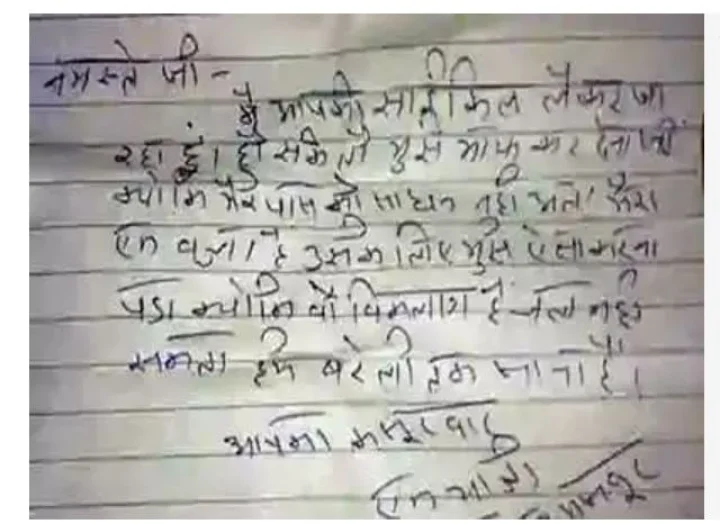 नमस्ते जी -
मै आपकी साईकिल लेकर जा
रहा हुं। हो सके तो मुझे माफ कर देना जी
क्योकि मेरे पास को साधन नही अतः मेरा
एक बच्चा है उसके लिए मुझे ऐसा करना
पडा क्योकि वो विकलांग है चल नही
सकता हमे बरेली तक जाना है।
आपका कसूरवार
एक
मजदूर